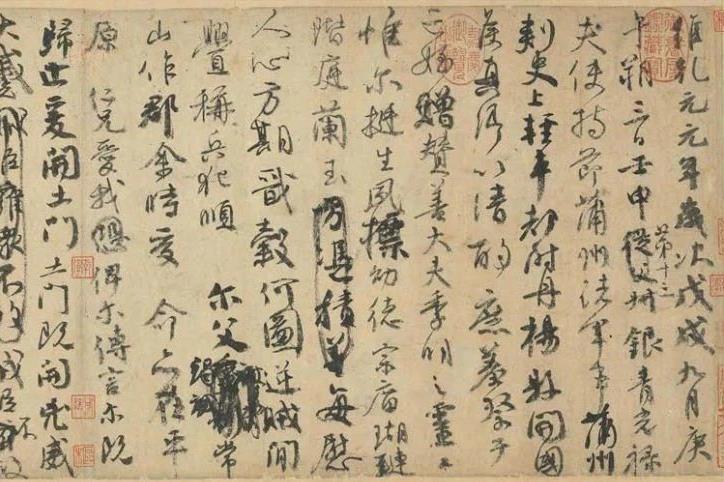 維乾元元年歲次戊戌九月庚
午朔三日壬申第十三從父銀青光祿
夫使持節蒲州諸軍事蒲州
刺史上輕車都尉丹楊縣開國
侯真卿以清酌庶羞祭于
亡姪贈贊善大夫季明之靈曰
惟爾挺生夙標幼德宗廟瑚璉
階庭蘭玉方憑積善每慰
人心方期戩穀何圖逆賊間
釁稱兵犯順 爾父竭誠常
山作郡余時受命亦在平
原仁兄愛我恐俾爾傳言爾既
歸止爰開土門土門既開凶威
大蹙賊臣擁衆不救賊臣不